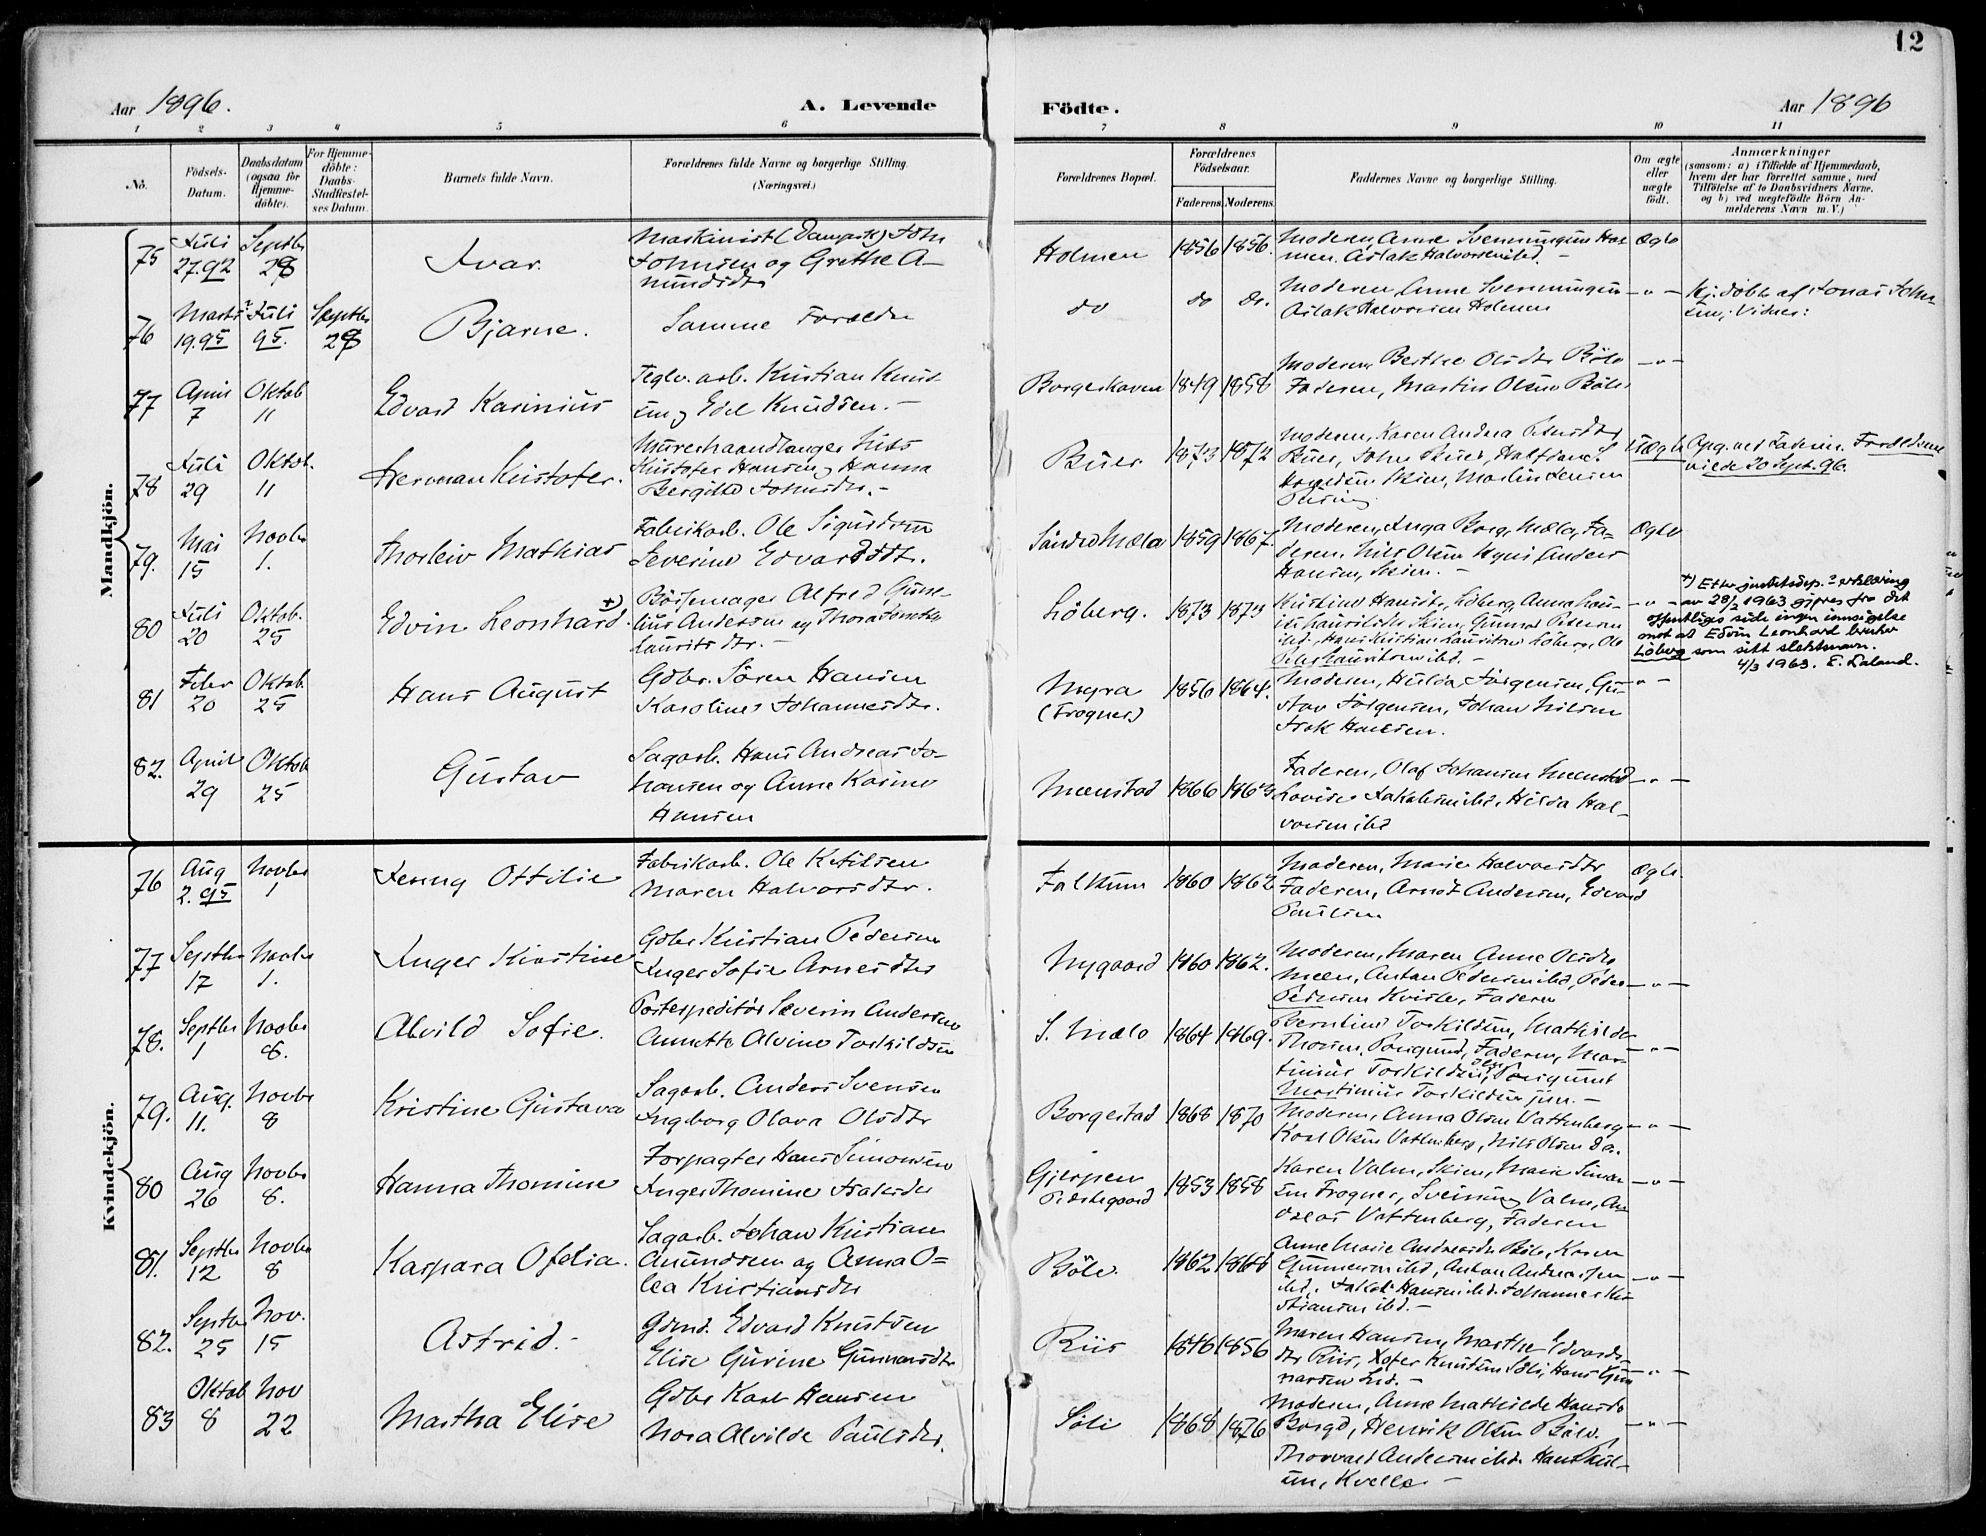 12
Aar 1896. A. Levende Födte. Aar 1896
1 2 3 4 5 6 7 8 9 10 11
No. Födsels-Datum. Daabsdatum (ogsaa for Hjemmedöbte). For Hjemmedöbte: Daabs-Stadfæstelses Datum. Barnets fulde Navn. Forældrenes fulde Navne og borgerlige Stilling. (Næringsvei.) Forældrenes Bopæl. Forældrenes Födselsaar. Faderens Moderens. Faddernes Navne og borgerlige Stilling. Om ægte eller uægte födt. Anmærkninger
(saasom: a) i Tilfælde af Hjemmedaab, hvem der har forrettet samme, med Tilföielse af to Daabsvidners Navne, og b) ved uægtefödte Börn Anmelderens Navn m. V.)
Mandkjön.
75 Juli 27.92 Septbr 28 Ivar. Maskinist (Dampsk) John
Johnsen og Grethe Amundsdtr Holmen 1856 1856. Moderen, Anne Svenningsen Holmen. Aslak Halvorsen ibd. Ægte
76 Marts 19.95 Juli 95. Septbr 28 Bjarne. Samme Forældre do do do. Moderen, Anne Svenningsen
Aslak Halvorsen Holmen — " — Hj. döbt af Jonas John
sen; Vidner:
77 April 7 Oktob 11 Edvard Karinius Teglv. arb. Kristian Knut
sen, Edel Knudsen. Borgeskaven 1849 1858 Moderen, Berthe Olsdtr Böle
Faderen, Martin Olsen Böle — " —
78 Juli 29 Oktob. 11 Herman Kristofer. Murerhaandlanger Nils
Kristofer Hansen, Hanna
Bergitte Johnsdtr. Buer 1873 1872 Moderen, Karen Andrea
Buer, John Buer, Skien, Martin Jensen Uægte Opg. ved Faderen. Forældrene
viede 20 Sept. 96.
79. Mai 15 Novbr 1. Thorleiv Mathias Fabrikarb. Ole Sigurdsen
Severine Edvardsdtr. Söndre Mæla 1859 1867. Moderen, Inga Borg, Mæla, Faderen, Nils Olsen Anders
Hansen, Skien. Ægte
80 Juli 20 Oktob. 25 Edvin Leonhard. +) Börsemager Alfred
Andersen og Thora
Lauritsdtr. Löberg. 1873 1873 Kristine Hansdtr, Löberg, Anna
Skien, Gunnar Petersen
ibd, Hans Kristian Lauritsen Löberg, Ole
ibd. — " — +) Etter justisdep.s erklæring
av 28/2 1963 gjøres fra det
offentliges side ingen innsigelse
mot at Edvin Leonhard bruker
Löberg som sitt slektsnavn.
4/3 1963. E. Laland.
81 Febr 20 Oktob. 25 Hans August Gdbr. Sören Hansen
Karoline Johannesdtr. Myra
(Frogner) 1856 1864. Moderen, Hulda Jörgensen, Gustav Jörgensen, Johan Nilsen
Isak Hansen. " —
82. April 29 Oktob 25 Gustav Sagarb. Hans Andreas Johansen og Anne Karine
Hansen Menstad 1866 1863 Faderen, Olaf Johansen Menstad
Lovise Jakobsen ibd, Hilda Halvorsen ibd — " —
Kvindekjön.
76 Aug 2.95 Novbr 1 Jenny Ottilie Fabrikarb. Ole Ketilsen
Maren Halvorsdtr. Falkum 1860 1862 Moderen, Marie Halvorsdtr
Faderen, Arnt Andersen, Edvard
Paulsen Ægte.
77 Septbr 17 Novbr 1. Inger Kirstine Gdbr Kristian Pedersen
Inger Sofie Arnesdtr Nygaard 1860 1862. Moderen, Maren Anne Olsdtr
Meen, Anton Pedersen ibd, Peder
Pedersen Kvisler, Faderen — " —
78. Septbr 1 Novbr 8. Alvild Sofie. Postexpeditör Severin Andersen
Annette Alvine Torkildsen S. Mæla 1864 1869. Berntine Torkildsen, Mathilde
Thorsen, Porsgrund, Faderen, Martinius Torkildsen sen. Porsgrund
Martinius Torkildsen jun. — " —
79. Aug. 11. Novbr 8 Kristine Gustava Sagarb. Anders Svensen
Ingborg Olava Olsdtr Borgestad 1868 1870 Moderen, Anna Olsen Vattenberg
Karl Olsen Vattenberg, Nils Olsen Do. — " —
80 Aug 26 Novbr 8. Hanna Thomine Forpagter Hans Simonsen
Inger Thomine Isaksdtr Gjerpen
Præstegaard 1853 1858 Karen Valm, Skien, Marie Simonsen Frogner, Svenning Valm, Andreas Vattenberg, Faderen — " —
81. Septbr 12 Novbr 8 Kaspara Ofelia. Sagarb. Johan Kristian
Amundsen og Anna Olea Kristiansdtr Böle. 1862 Anne Marie Andreasdtr Böle, Karen
Gunnersen ibd, Anton Andreassen
ibd, Jakob Hansen ibd. Johannes Kristiansen ibd. — " —
82. Septbr 25 Nov. 15 Astrid. Gdmd. Edvard Knutsen
Elise Gurine Gunnarsdtr Riis 1846 1856 Maren Hansen, Marthe Edvardsdtr Riis, Xofer Knutsen Söli, Hans Gunnarsen Lid. " —
83 Oktob 8 Nov 22 Martha Elise Gdbr Karl Hansen
Nora Alvilde Paulsdtr. Söli 1868 1876 Moderen, Anne Mathilde Hansdtr
Henrik Olsen Böle,
Thorvald Andersen ibd. Hans Paulsen, Kvelle — " —